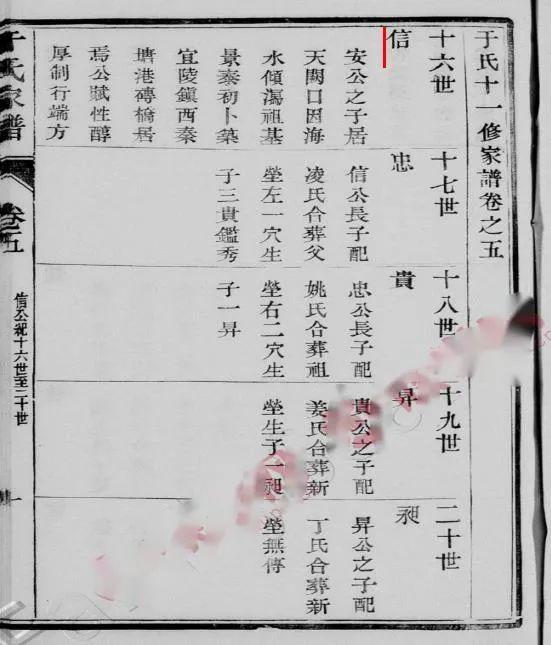 于氏十一修家譜卷之五
十六世
十七世
十八世
十九世
二十世
信
安公之子居
天闕口因海
水傾瀉祖基
景泰初卜築
宜陵鎮西秦
塘港磚橋居
焉公賦性醇
厚制行端方
忠
信公長子配
凌氏合葬父
塋左一穴生
子三貴鑑秀
貴
忠公長子配
姚氏合葬祖
塋右二穴生
子一昇
昇
貴公之子配
姜氏合葬新
塋生子一昶
昶
昇公之子配
丁氏合葬新
塋無傳
于氏家譜
卷五
信公祀十六世至二十世
一